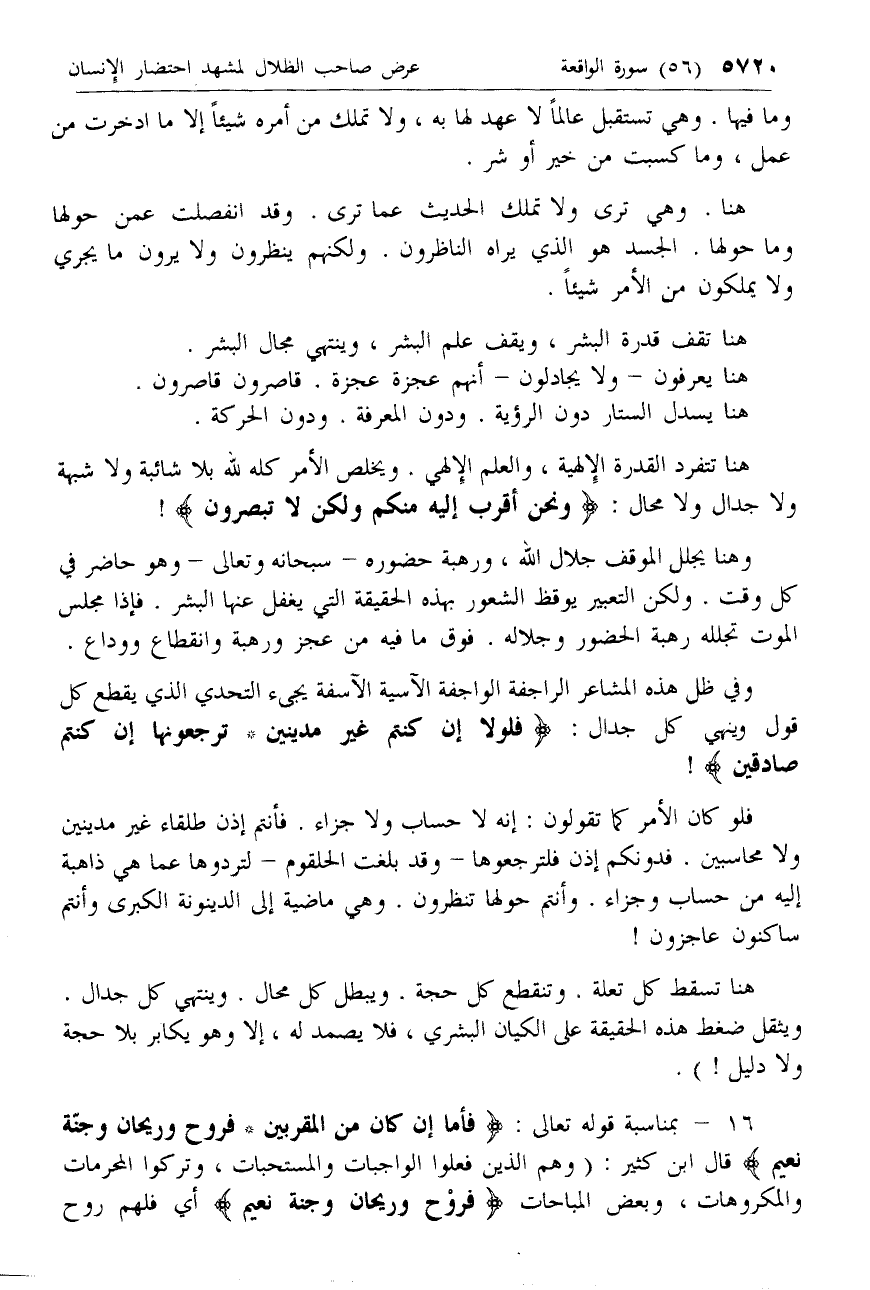 ٥٧٢٠ (٥٦) سورة الواقعة عرض صاحب الظلال لمشهد احتضار الإنسان
وما فيها . وهي تستقبل عالماً لا عهد لها به ، ولا تملك من أمره شيئاً إلا ما ادخرت من
عمل ، وما كسبت من خير أو شر .
هنا . وهي ترى ولا تملك الحديث عما ترى . وقد انفصلت عمن حولها
وما حولها . الجسد هو الذي يراه الناظرون . ولكنهم ينظرون ولا يرون ما يجري
ولا يملكون من الأمر شيئاً .
هنا تقف قدرة البشر ، ويقف علم البشر ، وينتهي مجال البشر .
هنا يعرفون – ولا يجادلون – أنهم عجزة عجزة . قاصرون قاصرون .
هنا يسدل الستار دون الرؤية . ودون المعرفة . ودون الحركة .
هنا تتفرد القدرة الإلهية ، والعلم الإلهي . ويخلص الأمر كله لله بلا شائبة ولا شبهة
ولا جدال ولا محال : ﴿ ونحن أقرب إليه منكم ولكن لا تبصرون ﴾ !
وهنا يجلل الموقف جلال الله ، ورهبة حضوره – سبحانه وتعالى – وهو حاضر في
كل وقت . ولكن التعبير يوقظ الشعور بهذه الحقيقة التي يغفل عنها البشر . فإذا مجلس
الموت تجلله رهبة الحضور وجلاله . فوق ما فيه من عجز ورهبة وانقطاع ووداع .
وفي ظل هذه المشاعر الراجفة الواجفة الآسية الآسفة يجيء التحدي الذي يقطع كل
قول وينهي كل جدال : ﴿ فلولا إن كنتم غير مدينين * ترجعونها إن كنتم
صادقين ﴾ !
فلو كان الأمر كما تقولون : إنه لا حساب ولا جزاء . فأنتم إذن طلقاء غير مدينين
ولا محاسبين . فدونكم إذن فلترجعوها – وقد بلغت الحلقوم – لتردوها عما هي ذاهبة
إليه من حساب وجزاء . وأنتم حولها تنظرون . وهي ماضية إلى الدينونة الكبرى وأنتم
ساكنون عاجزون !
هنا تسقط كل تعلة . وتنقطع كل حجة . ويبطل كل محال . وينتهي كل جدال .
ويثقل ضغط هذه الحقيقة على الكيان البشري ، فلا يصمد له ، إلا وهو يكابر بلا حجة
ولا دليل ! ) .
١٦ – بمناسبة قوله تعالى : ﴿ فأما إن كان من المقربين * فروح وريحان وجنّة
نعيم ﴾ قال ابن كثير : ( وهم الذين فعلوا الواجبات والمستحبات ، وتركوا المحرمات
والمكروهات ، وبعض المباحات ﴿ فروْح وريحان وجنة نعيم ﴾ أي فلهم روح